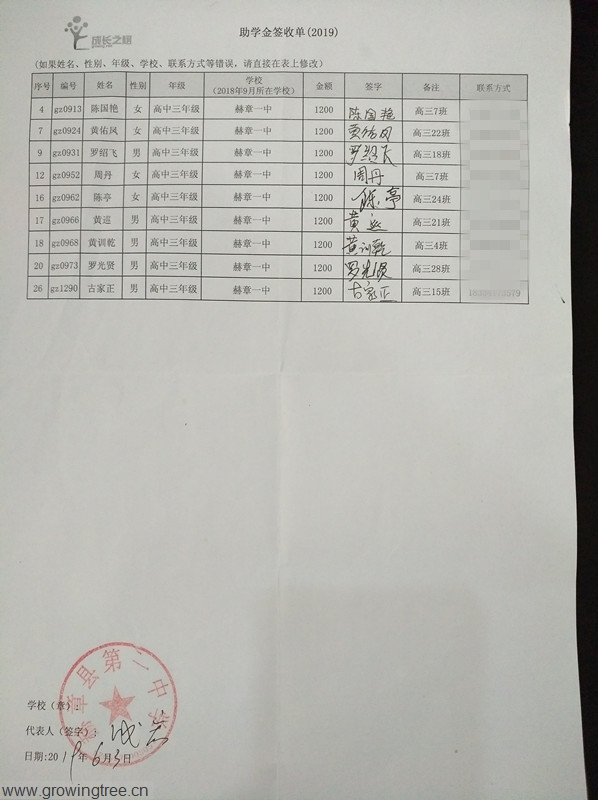 成长之树
助学金签收单(2019)
(如果姓名、性别、年级、学校、联系方式等错误，请直接在表上修改)
序号 编号 姓名 性别 年级 学校 (2018年9月所在学校) 金额 签字 备注 联系方式
4 gz0913 陈国艳 女 高中三年级 赫章一中 1200 陈国艳 高三7班
7 gz0924 黄佑风 女 高中三年级 赫章一中 1200 黄佑风 高三22班
9 gz0931 罗绍飞 男 高中三年级 赫章一中 1200 罗绍飞 高三18班
12 gz0952 周丹 女 高中三年级 赫章一中 1200 周丹 高三7班
16 gz0962 陈亭 女 高中三年级 赫章一中 1200 陈亭 高三24班
17 gz0966 黄巡 男 高中三年级 赫章一中 1200 黄巡 高三21班
18 gz0968 黄训乾 男 高中三年级 赫章一中 1200 黄训乾 高三4班
20 gz0973 罗光贤 男 高中三年级 赫章一中 1200 罗光贤 高三28班
26 gz1290 古家正 男 高中三年级 赫章一中 1200 古家正 高三15班
赫章县第二中学
学校（章）:
代表人（签字）:
日期:2019年6月3日
www.growingtree.cn